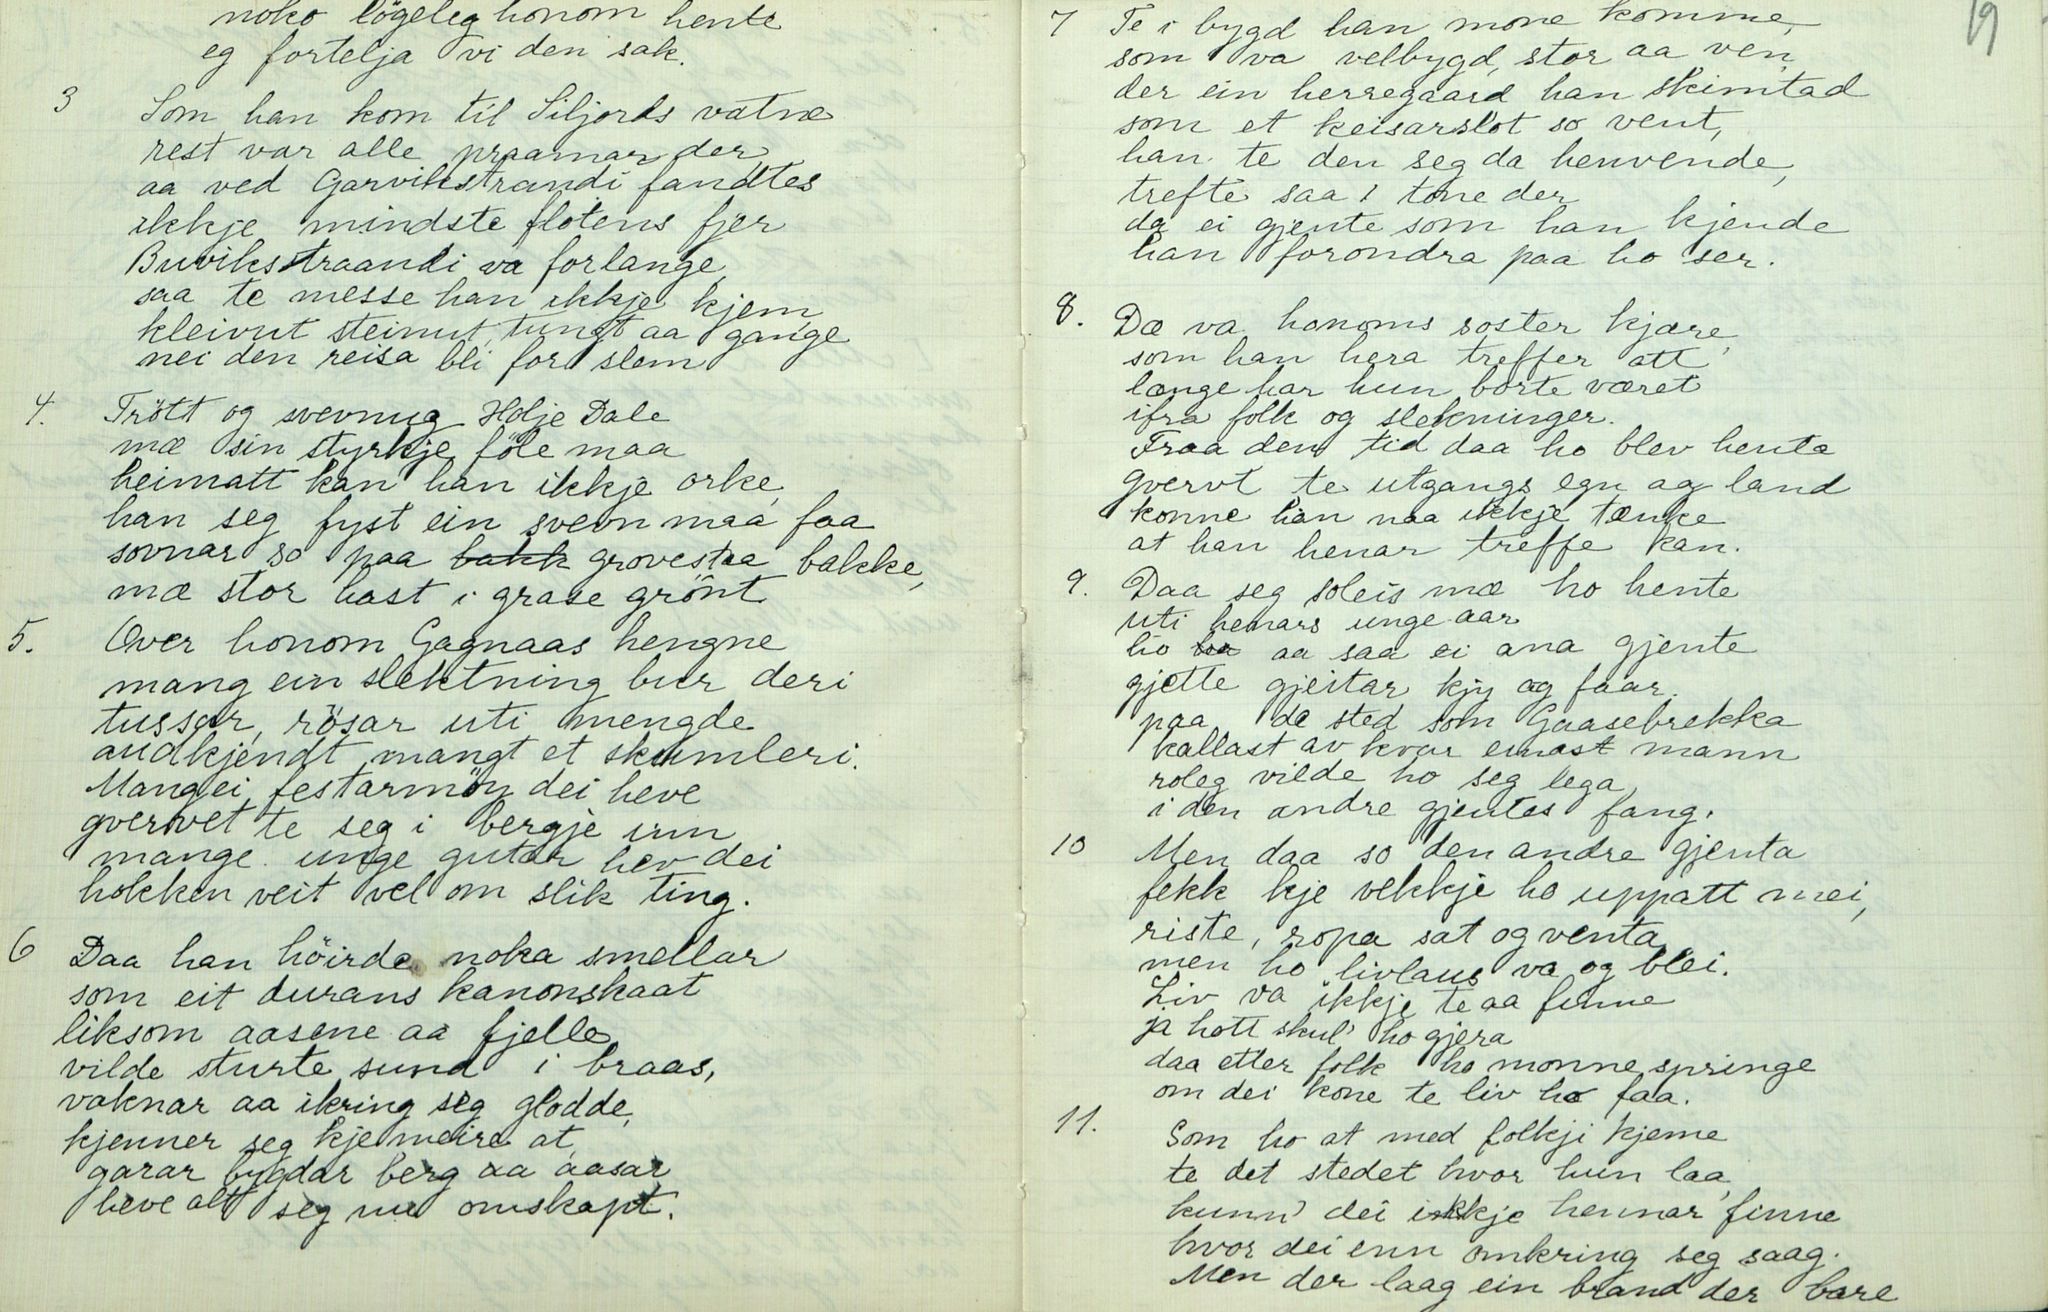 noko lögeleg honom hente
eg fortelja vi den sak.
3 Som han kom til Siljords vatne
rest var alle praamar der,
aa ved Garvikstrandi fandtes
ikkje mindste flotens fjer
Buviksstraandi va forlange,
saa te messe han ikkje kjem
kleivut steinut, tungt aa gange
nei den reisa bli for slem
4. Trött og svevnug Holje Dale
mæ sin styrkje föle maa
heimatt kan han ikkje orke,
han seg fyst ein svevn maa faa
sovnar so paa grovestaa bakke,
mæ stor hast i grase grönt
5. Over honom Gagnaas hengne
mang ein slektning bur deri
tussar, rösar uti mengde
audkjendt mangt et skumleri.
Mang ei festarmöy dei heve
gvervet te seg i bergje inn
mange unge gutar hev dei
hokken veit vel om slik ting.
6 Daa han höirde noka smellar
som eit durans kanonskaat
liksom aasene aa fjelle
vilde sturte sund i braas,
vaknar aa ikring seg glodde,
kjenner seg kje meire at,
garar bygdar berg aa aasar
heve alt seg nu omskapt.
19
7 Te i bygd han mone komme,
som va velbygd, stor aa ven,
der ein herregaard han skimtad
som et keisarslot so vent,
han te den seg da henvende,
trefte saa i tone der
da ei gjente som han kjende
han forondra paa ho ser.
8. Dæ va honoms soster kjære,
som han hera treffer att
længe har hun borte været
ifra folk og slekninger.
Fraa den tid daa ho blev henta
gvervt te utgangs egn ag land
konne han naa ikkje tænke
at han henar treffe kan.
9. Daa seg soleis mæ ho hente
uti henars unge aar
ho aa saa ei ana gjente
gjette gjeitar kjy og faar.
paa de sted som Gaasebrekka
kallast av kvar einast mann
roleg vilde ho seg lega
i den andre gjentes fang.
10 Men daa so den andre gjenta
fekk kje vekkje ho uppatt mei,
riste, ropa sat og venta
men ho livlaus va og blei.
Liv va ikkje te aa finne
ja hott skul' ho gjera
daa etter folk ho monne springe
om dei kone te liv ho faa.
11. Som ho at med folkji kjeme
te det stedet hvor hun laa,
kunn' dei ikkje hennar finne
hvor dei enn omkring seg saag.
Men der laag ein brand der bare